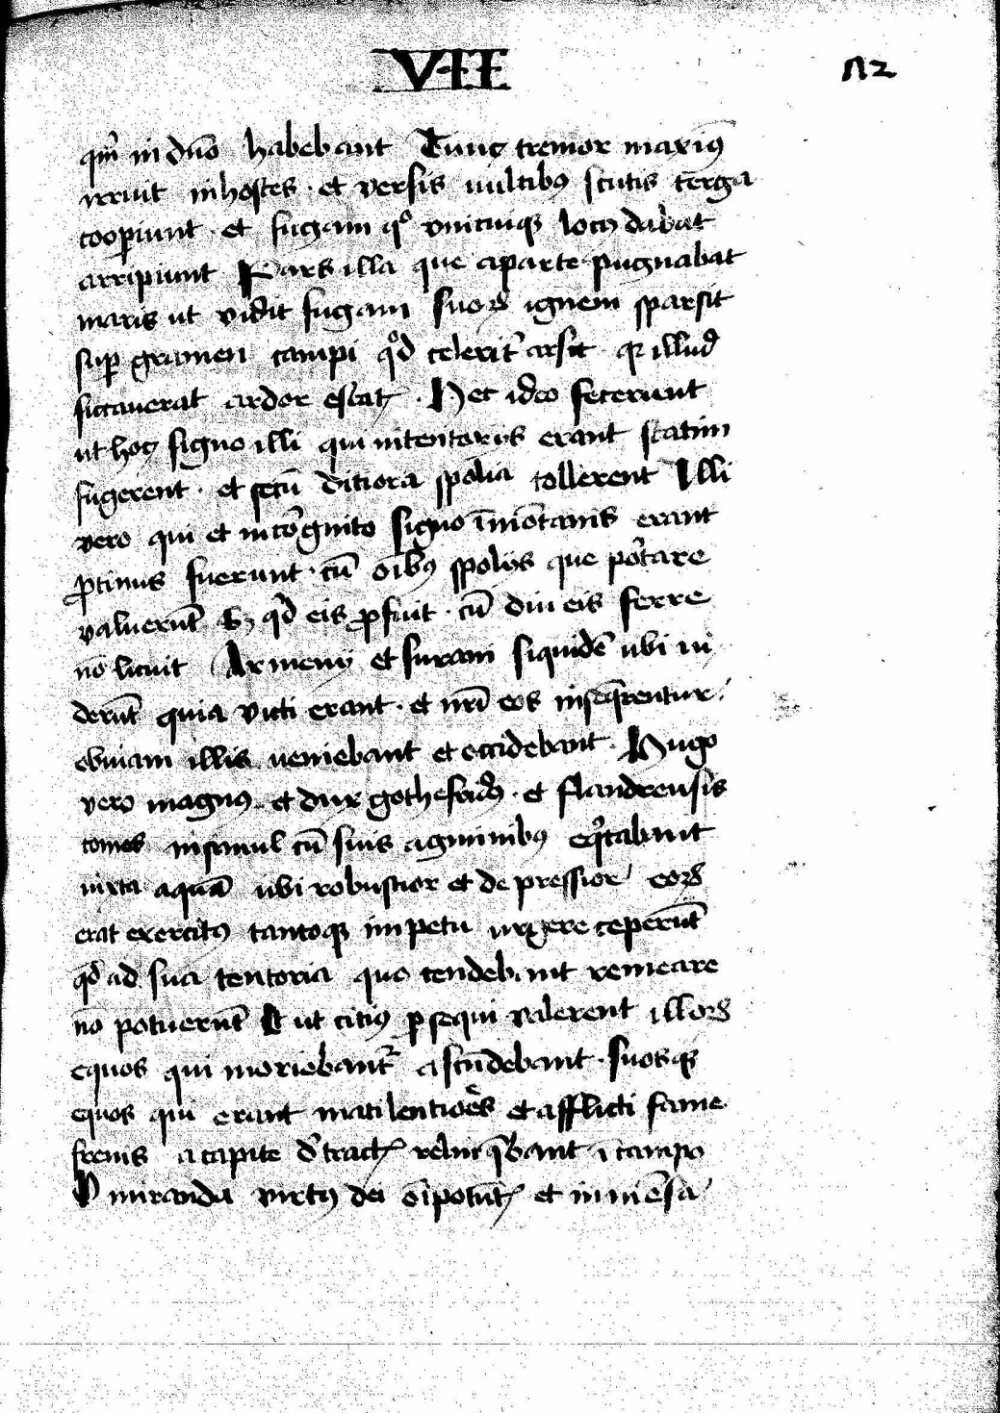 VII
112
qm̄ in dn̄o habebant Tunc tremor maxiꝰ
irruit in hostes · et versis vultibꝰ scutis terga
cooꝑiunt · et fugam qͦ vnicuiqꝫ locꝰ dabat
arripiunt Pars illa que aparte pugnabat
maris ut vidit fugam suoꝝ ignem sparsit
suꝑ gramen campi qͦd celerit̉ arsit · qꝛ illud
siccauerat ardor estatꝭ · Hec ideo fecerunt
ut hoc signo illi qui intentoriis erant statim
fugerent · et secū ditiora spolia tollerent Illi
vero qui et incognito signo ī mōtanis erant
ꝓtinus fuerunt · cū oībꝰ spoliis que portare
valuerūt Sꝫ qͥd eis ꝓfuit · cū diu eis ferre
nō licuit Armenii et surani siquidē ubi vi
derūt quia victi erant · et nr̄i eos inseq̄rentur ·
obuiam illis ueniebant et occidebant · Hugo
vero magnꝰ · et dux gothefridꝰ · et flandrensis
comes insimul cū suis agminibꝰ eq̇tabant
iuxta aquā ubi robustior et depressior eoꝝ
erat exercitꝰ tantoqꝫ impetu urgere ceperūt
qͦd ad sua tentoria quo tendebant remeare
nō potuerūt Et ut citiꝰ ꝑsequi valerent illoꝝ
equos qui moriebant̉ ascēdebant · suosqꝫ
equos qui erant macilentiōes et afflicti fame
frenis acapite d̉tractꝭ relinq̄bant ī campo
O miranda virtꝰ dei oīpotētꝭ et inmēsa